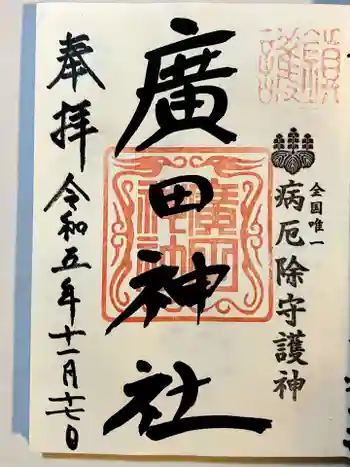 鎮護
全国唯一
病厄除守護神
廣田神社
廣田神社
奉拝
令和五年十一月十七日